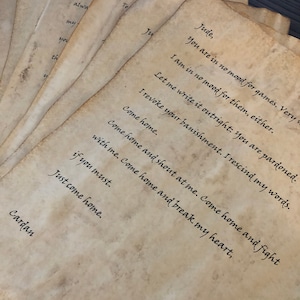 Jude,
You are in no mood for games. Very
I am in no mood for them, either.
Let me write it outright: You are pardoned.
I revoke your banishment. I rescind my words.
Come home.
Come home and shout at me. Come home and fight
with me. Come home and break my heart,
if you must.
Just come home.
Cardan